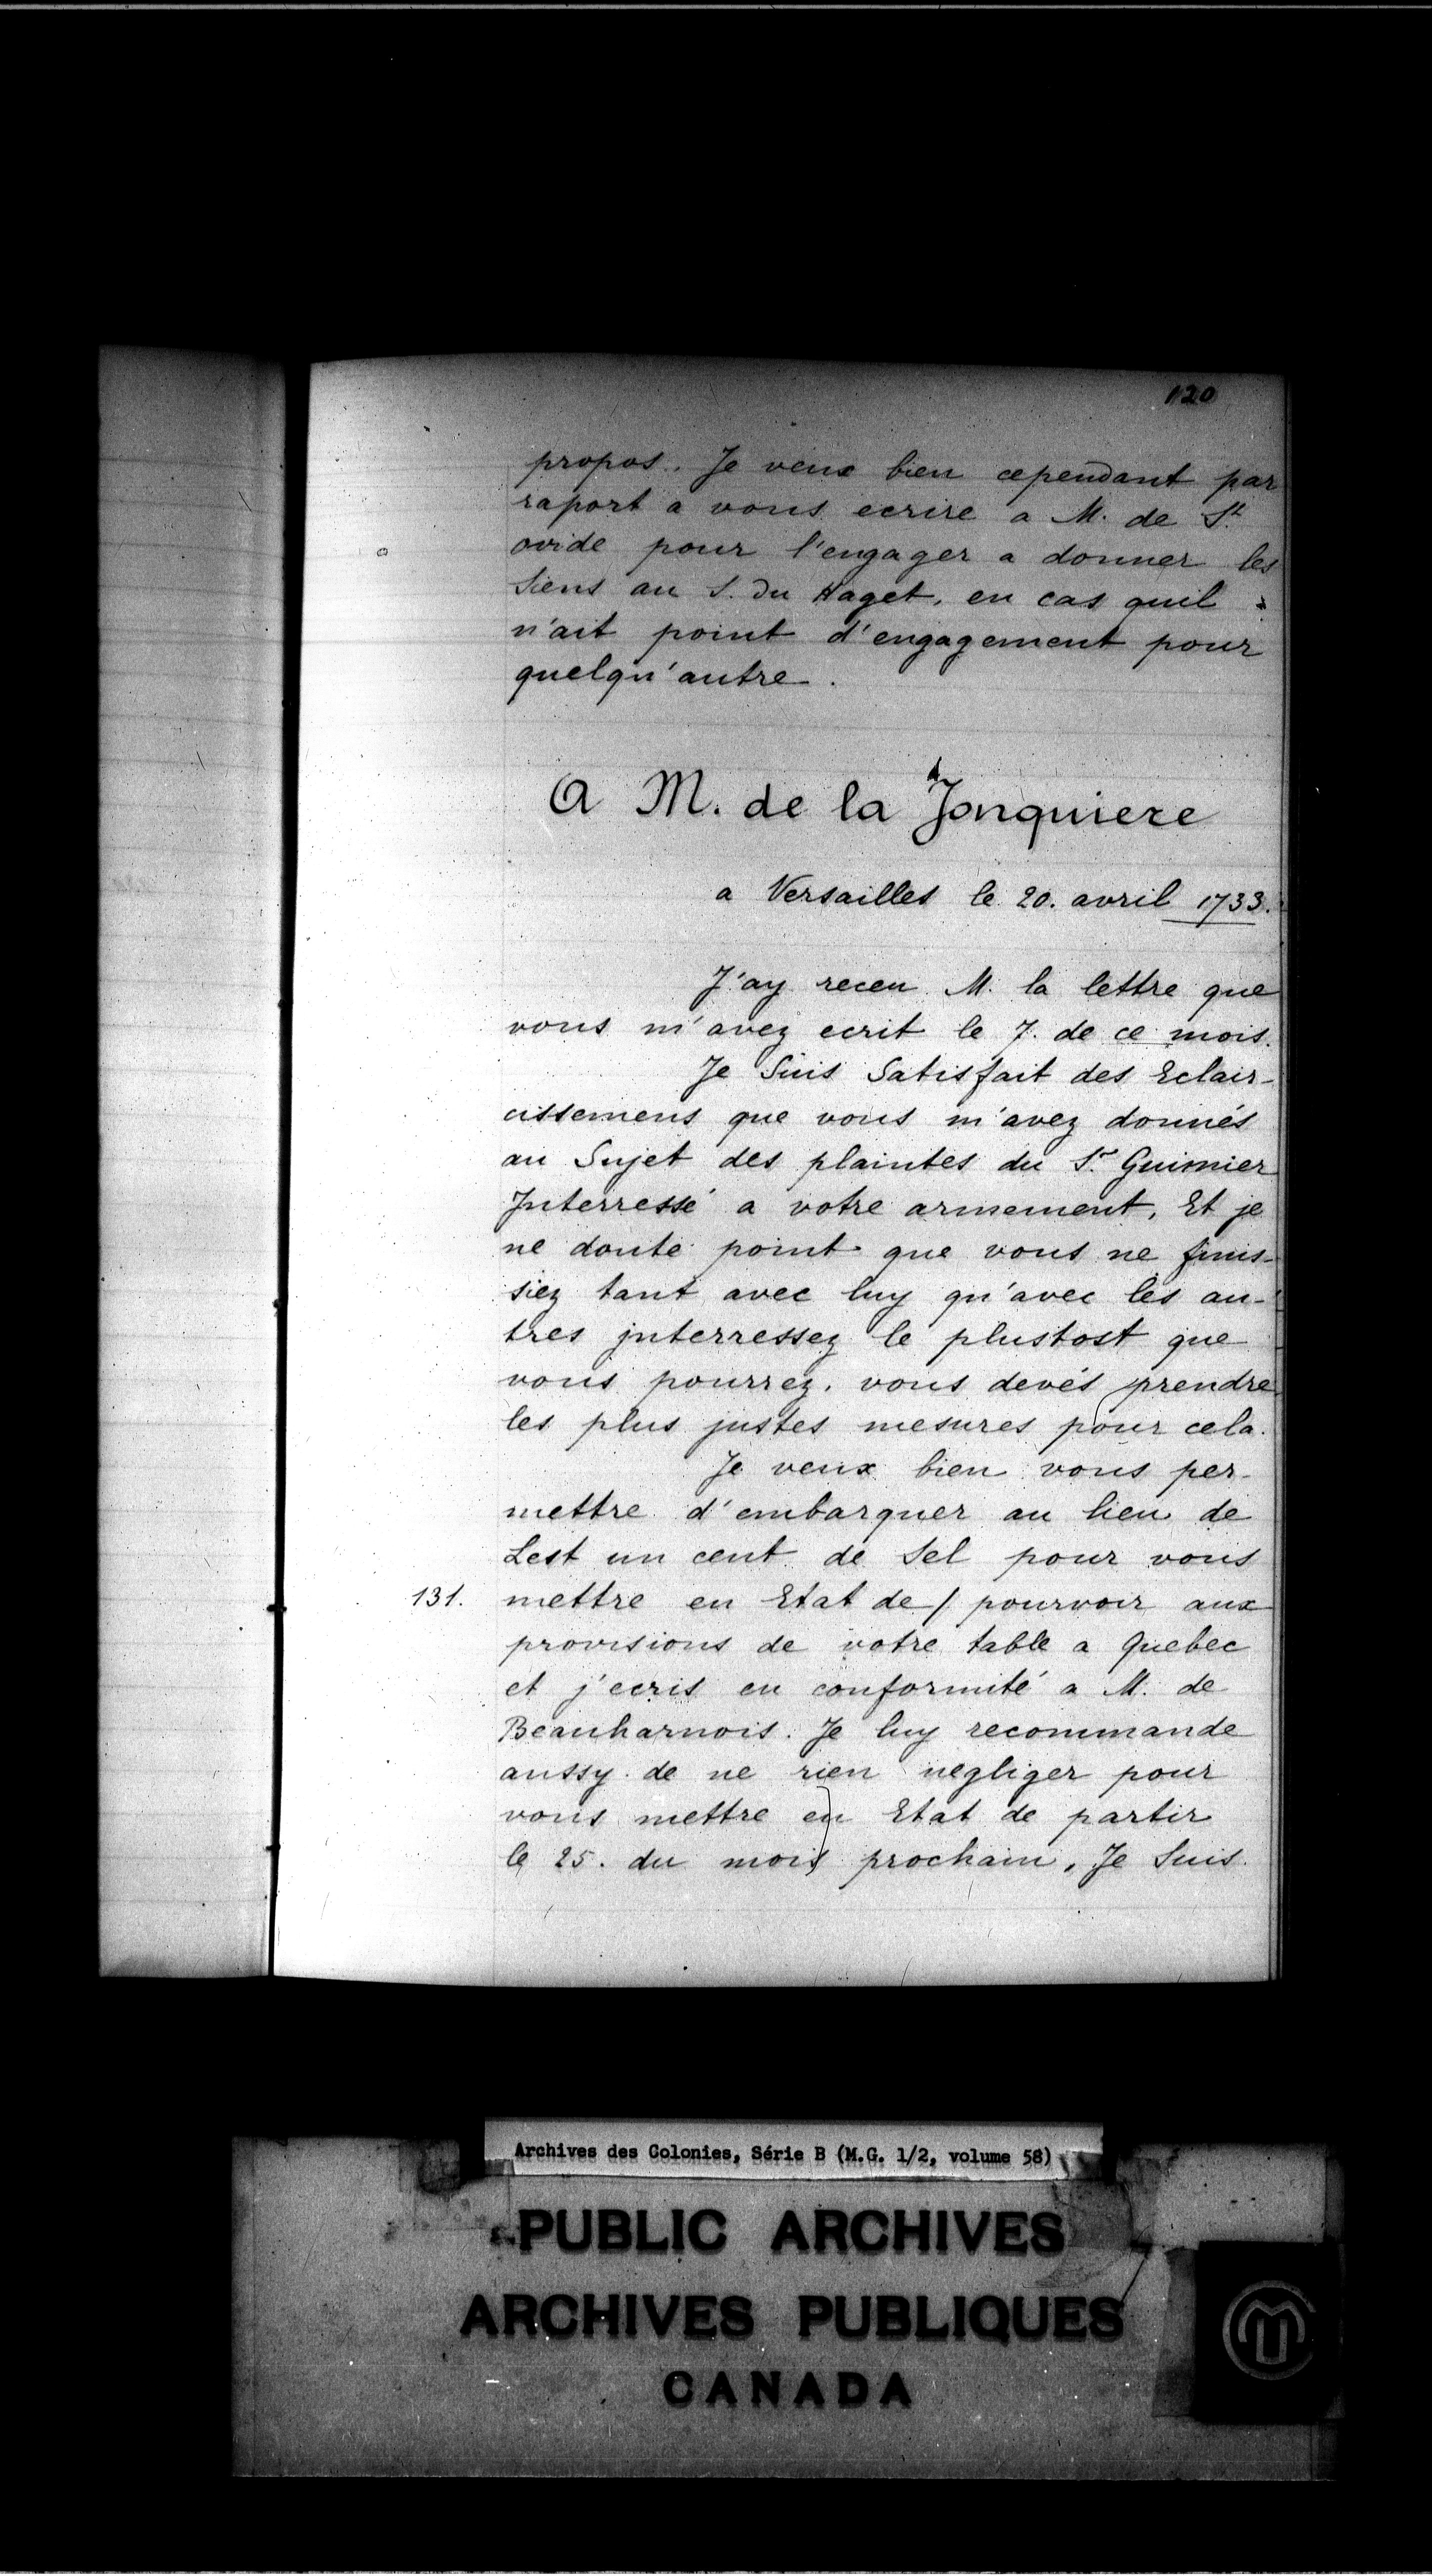 120
propos. Je veux bien cependant par
raport a vous ecrire a M. de St.
ovide pour l'engager a donner les
Siens au S. Du Haget, en cas quil
n'ait point d'engagement pour
quelqu'autre.
A M. de la Jonquiere
a Versailles le 20. avril 1733.
J'ay receu M. la lettre que
vous m'avez ecrit le 7. de ce mois.
Je Suis Satisfait des Eclair-
cissemens que vous m'avez donnés
au Sujet des plaintes du Sr. Guimier
Interressé a votre armement, Et je
ne doute point que vous ne finis-
siez tant avec luy qu'avec les au-
tres jnterressez le plustost que
vous pourrez. vous devés prendre
les plus justes mesures pour cela.
Je veux bien vous per-
mettre d'embarquer au lieu de
Lest un cent de Sel pour vous
131. mettre en Etat de / pourvoir aux
provisions de votre table a Quebec
et j'ecris en conformité a M. de
Beauharnois. Je luy recommande
aussy de ne rien negliger pour
vous mettre en Etat de partir
le 25. du mois prochain, Je Suis
Archives des Colonies, Série B (M.G. 1/2, volume 58)
PUBLIC ARCHIVES
ARCHIVES PUBLIQUES
CANADA